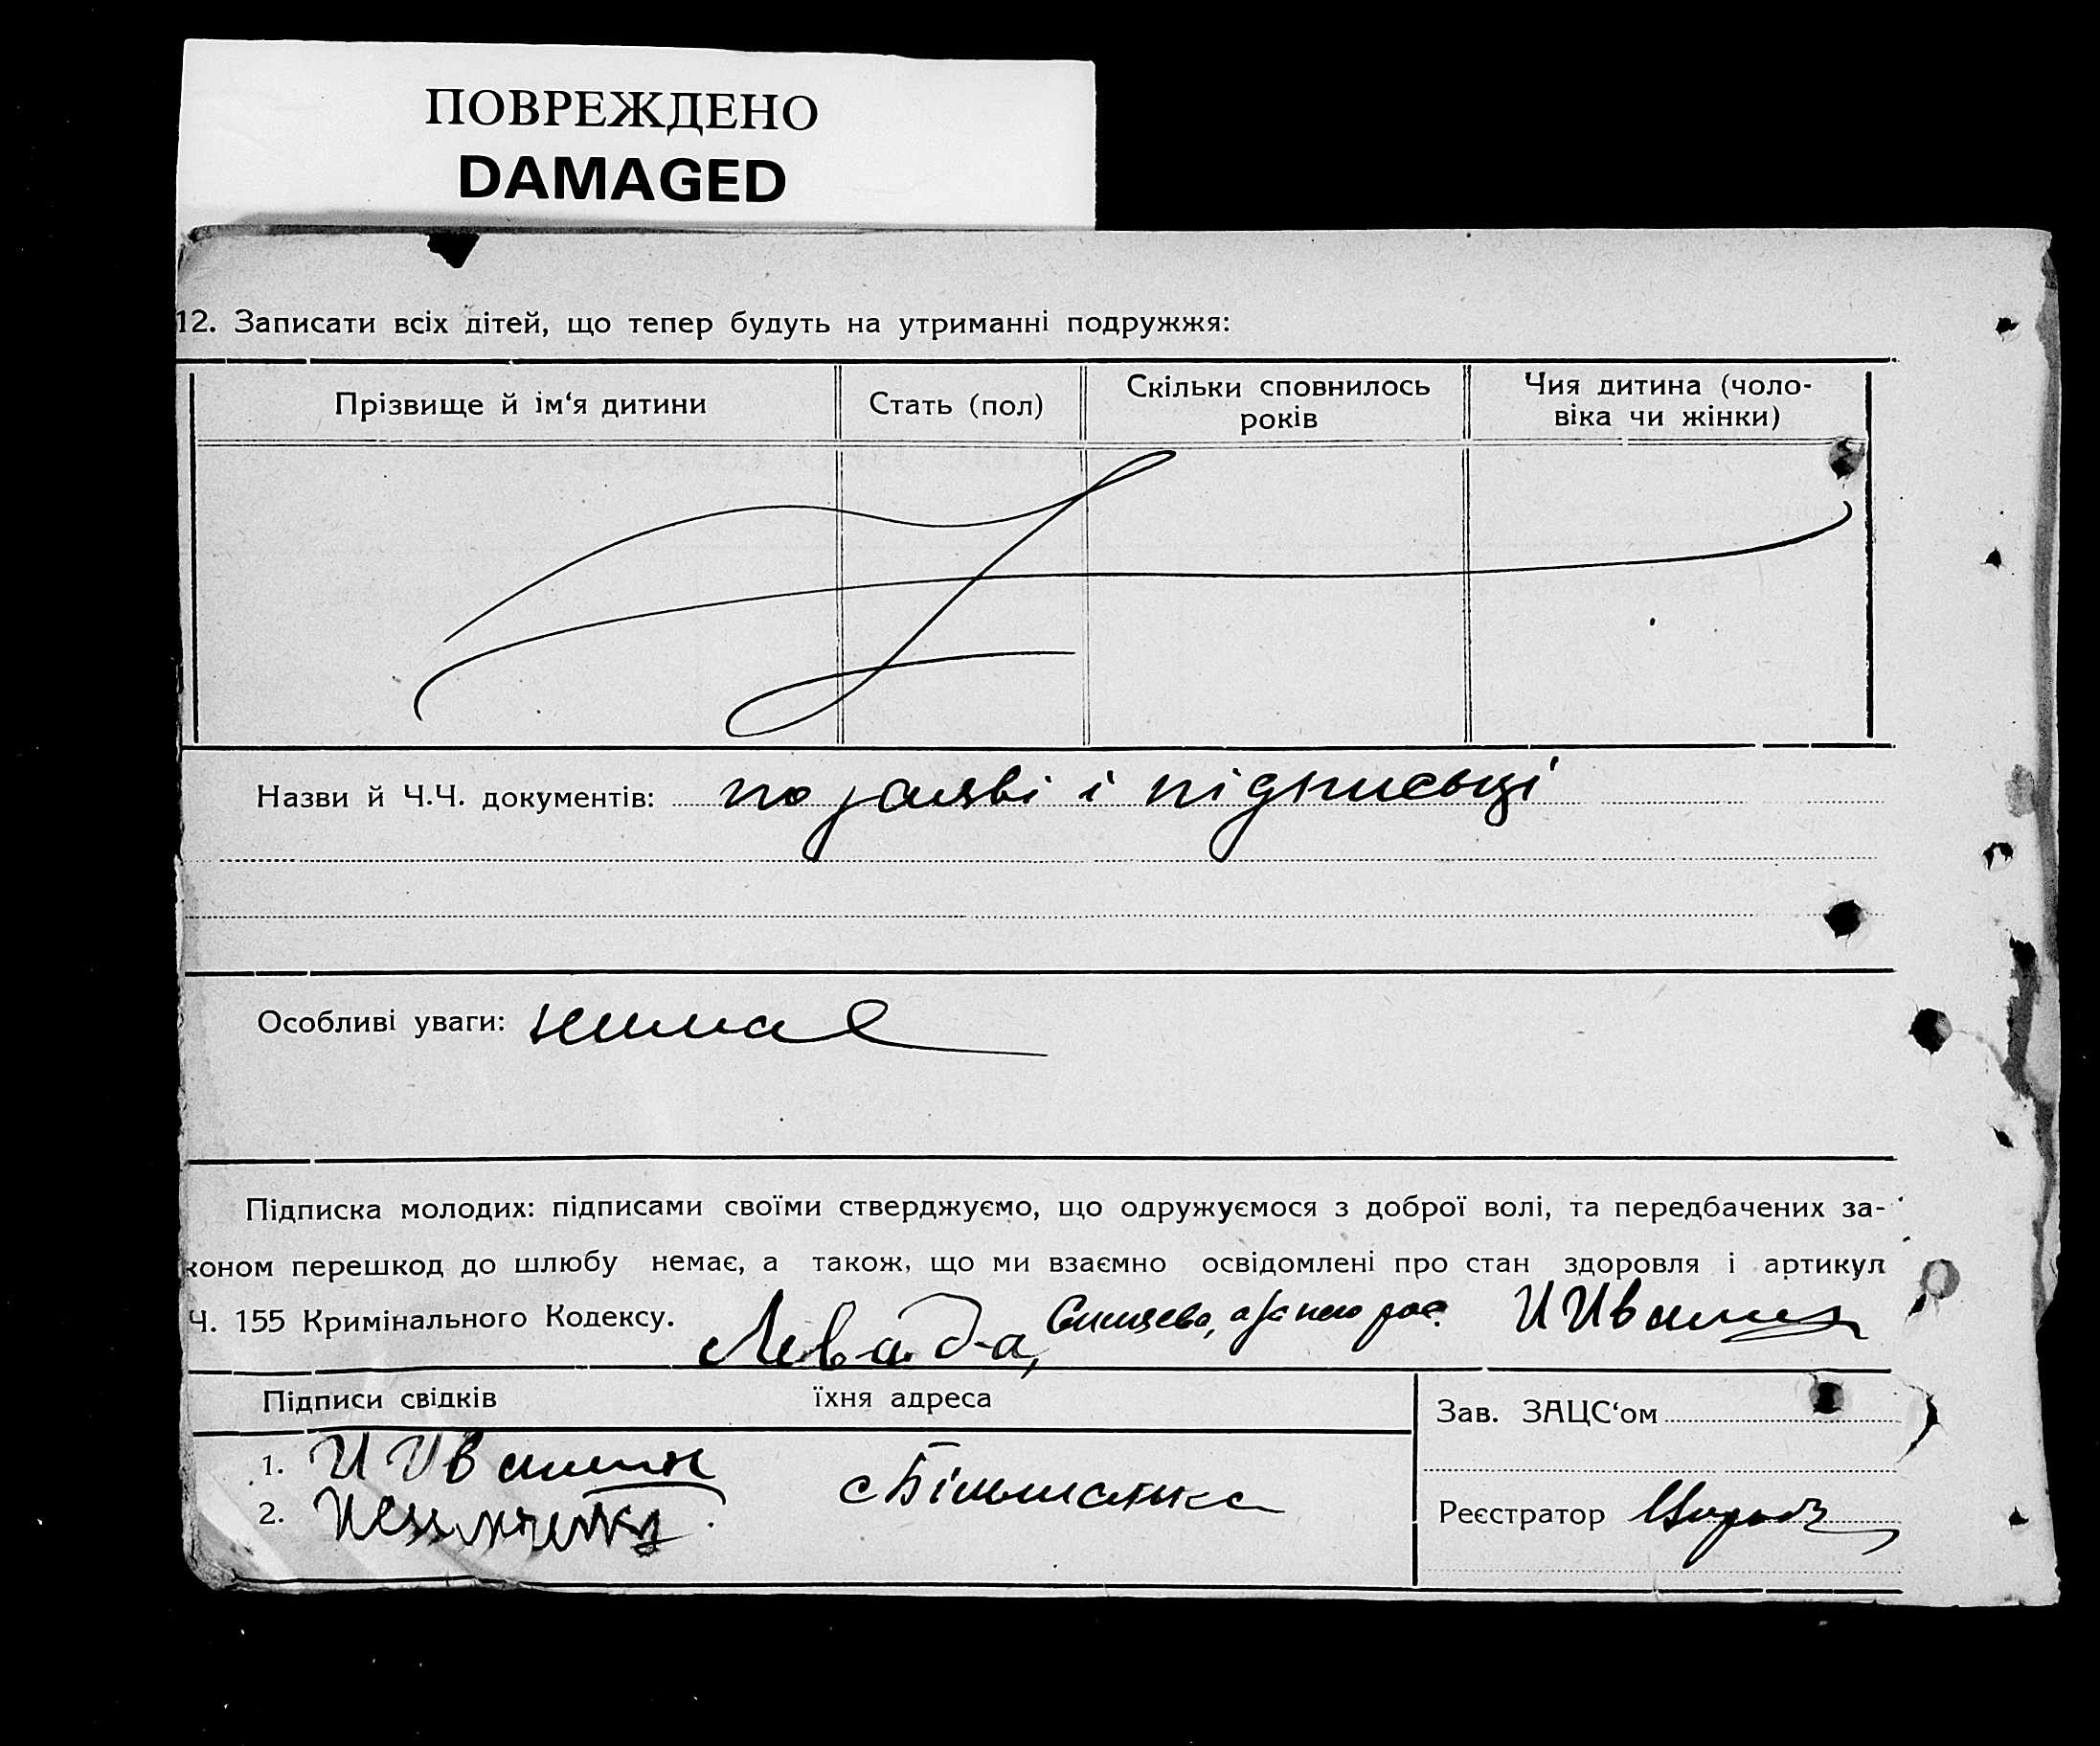 ПОВРЕЖДЕНО
DAMAGED
12. Записати всіх дітей, що тепер будуть на утриманні подружжя:
Прізвище й ім‘я дитини
Стать (пол)
Скільки сповнилось
років
Чия дитина (чоло-
віка чи жінки)
Назви й Ч.Ч. документів: по заяві і підписьці
Особливі уваги: нимає
Підписка молодих: підписами своїми стверджуємо, що одружуємося з доброї волі, та передбачених за-
коном перешкод до шлюбу немає, а також, що ми взаємно освідомлені про стан здоровля і артикул
Ч. 155 Кримінального Кодексу. Левада,
Підписи свідків їхня адреса
Зав. ЗАЦС‘ом
1.
2.
Реєстратор